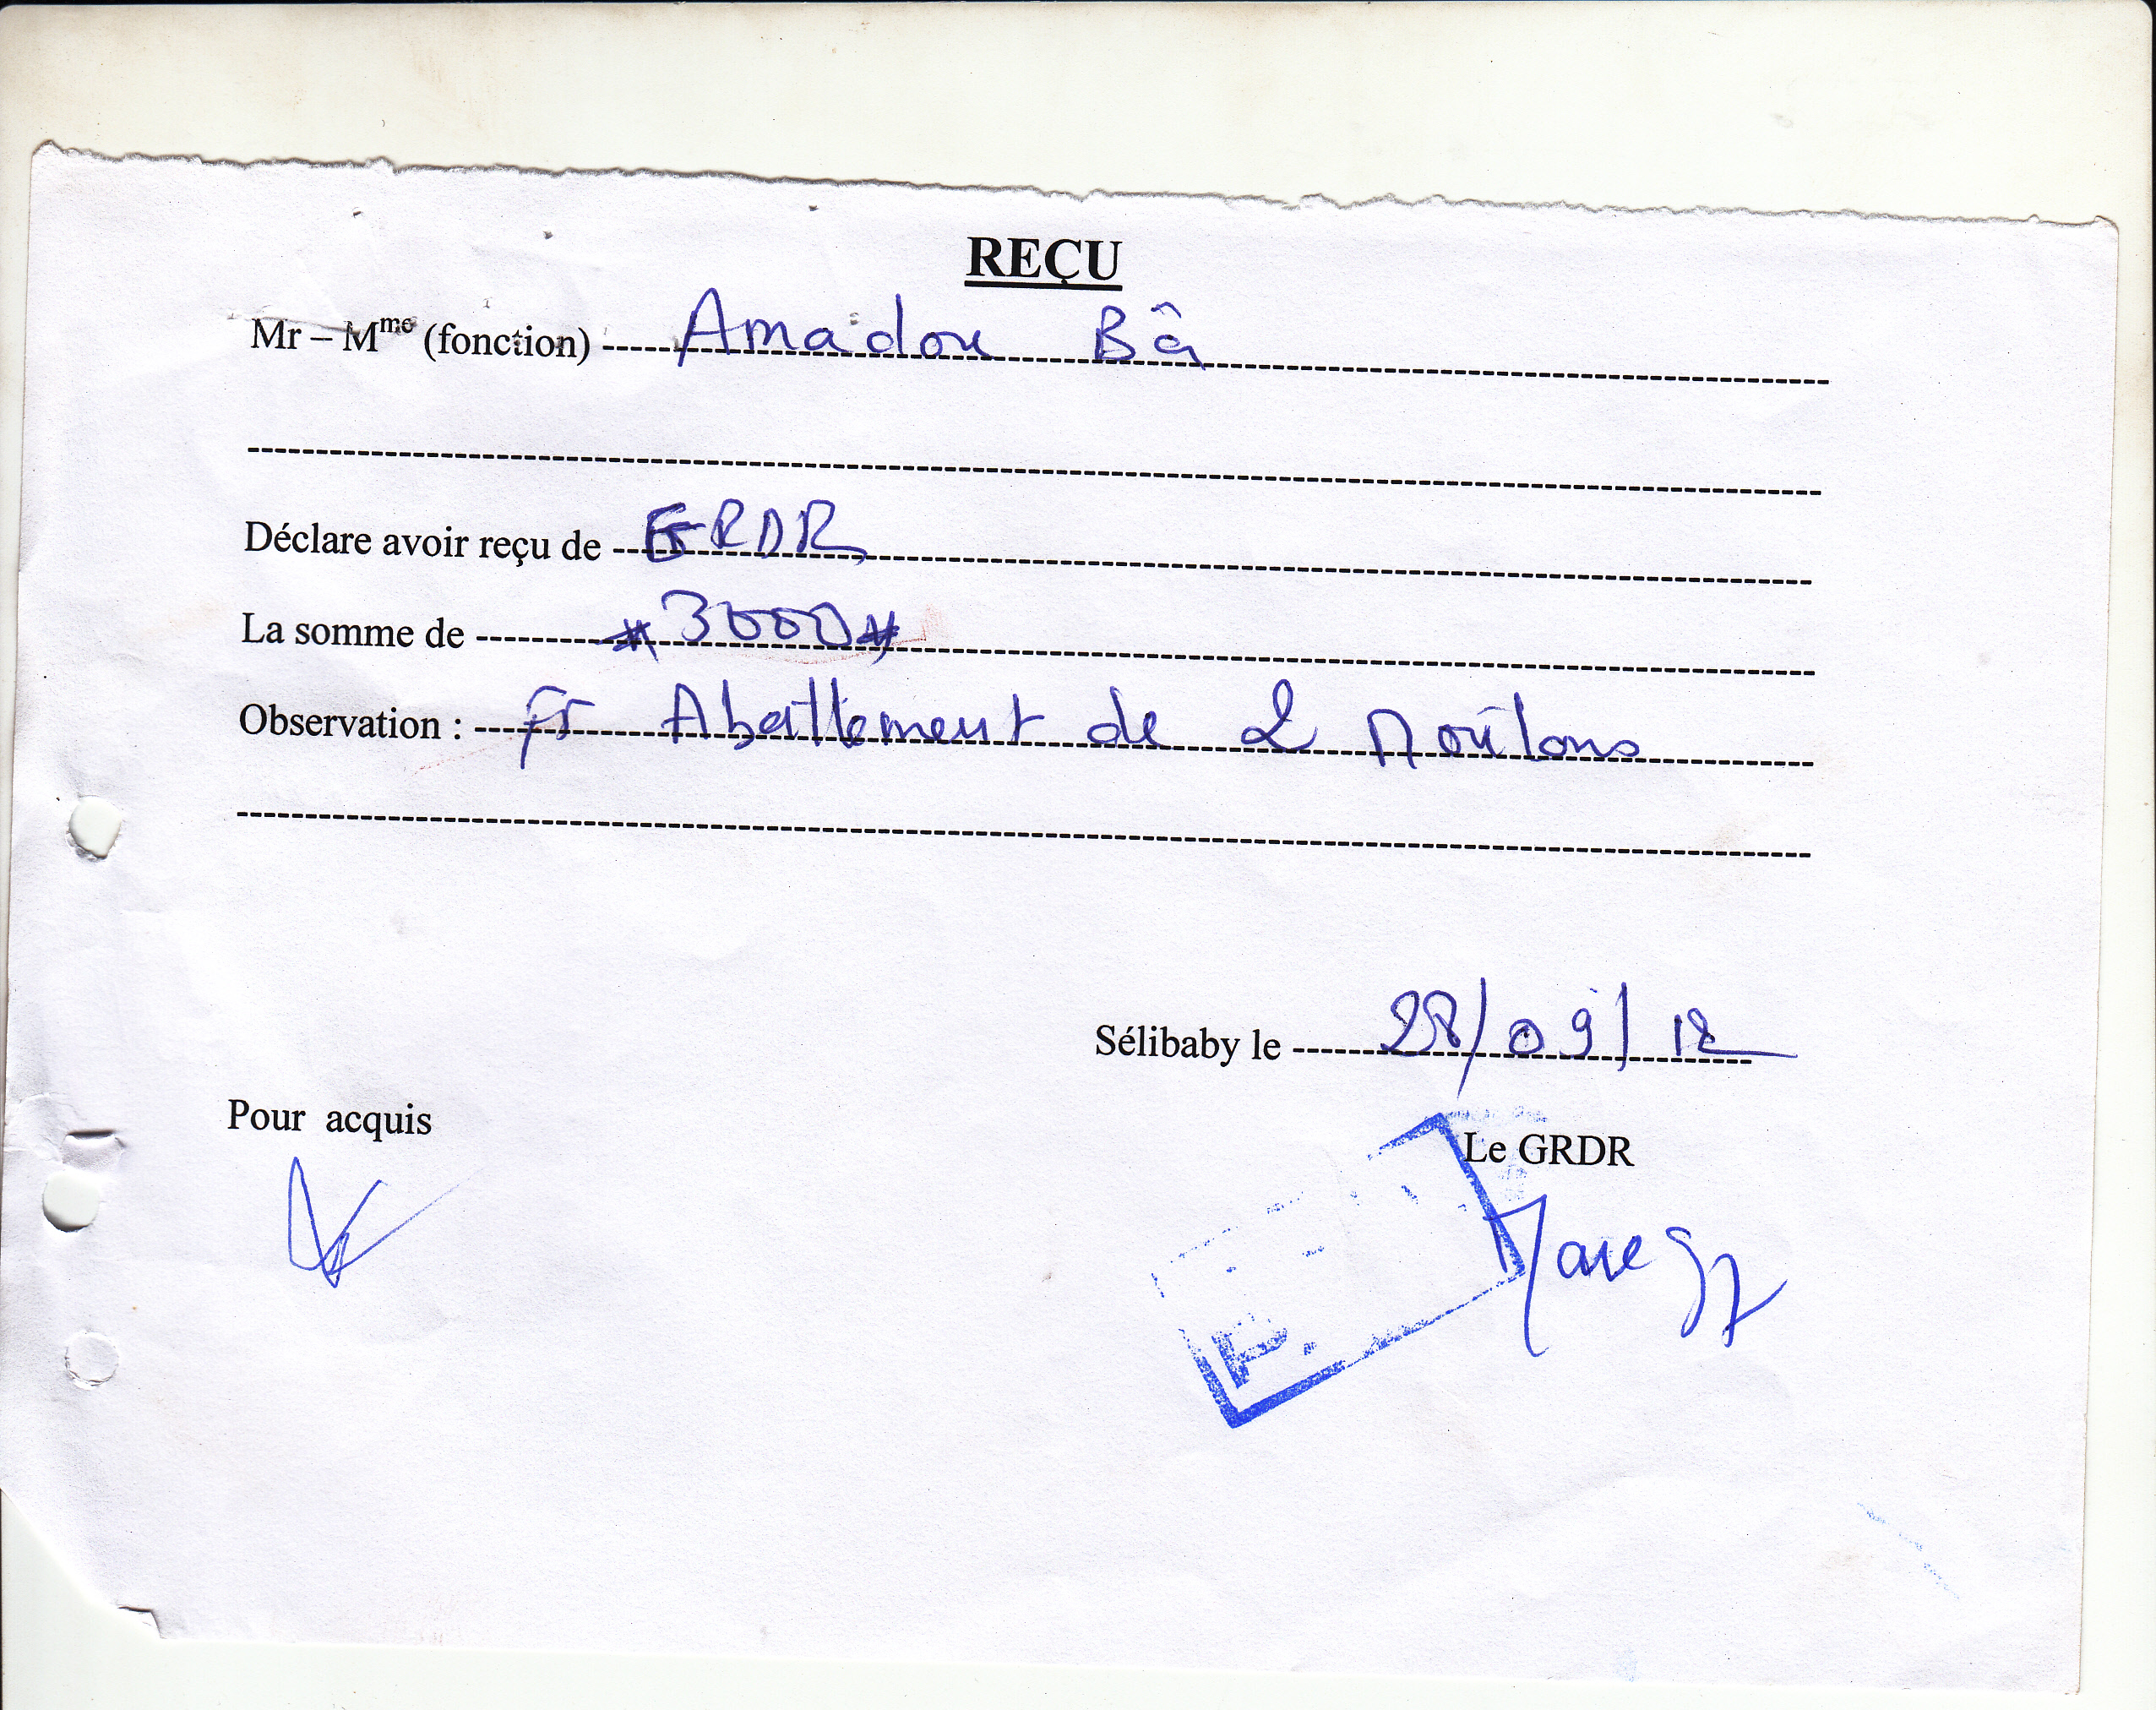 REÇU
Mr – Mme (fonction) Amadou Bâ
Déclare avoir reçu de GRDR
La somme de #3000#
Observation : Fr Abattement de 2 Moûtons
Sélibaby le 28/09/12
Pour acquis
Le GRDR
P.